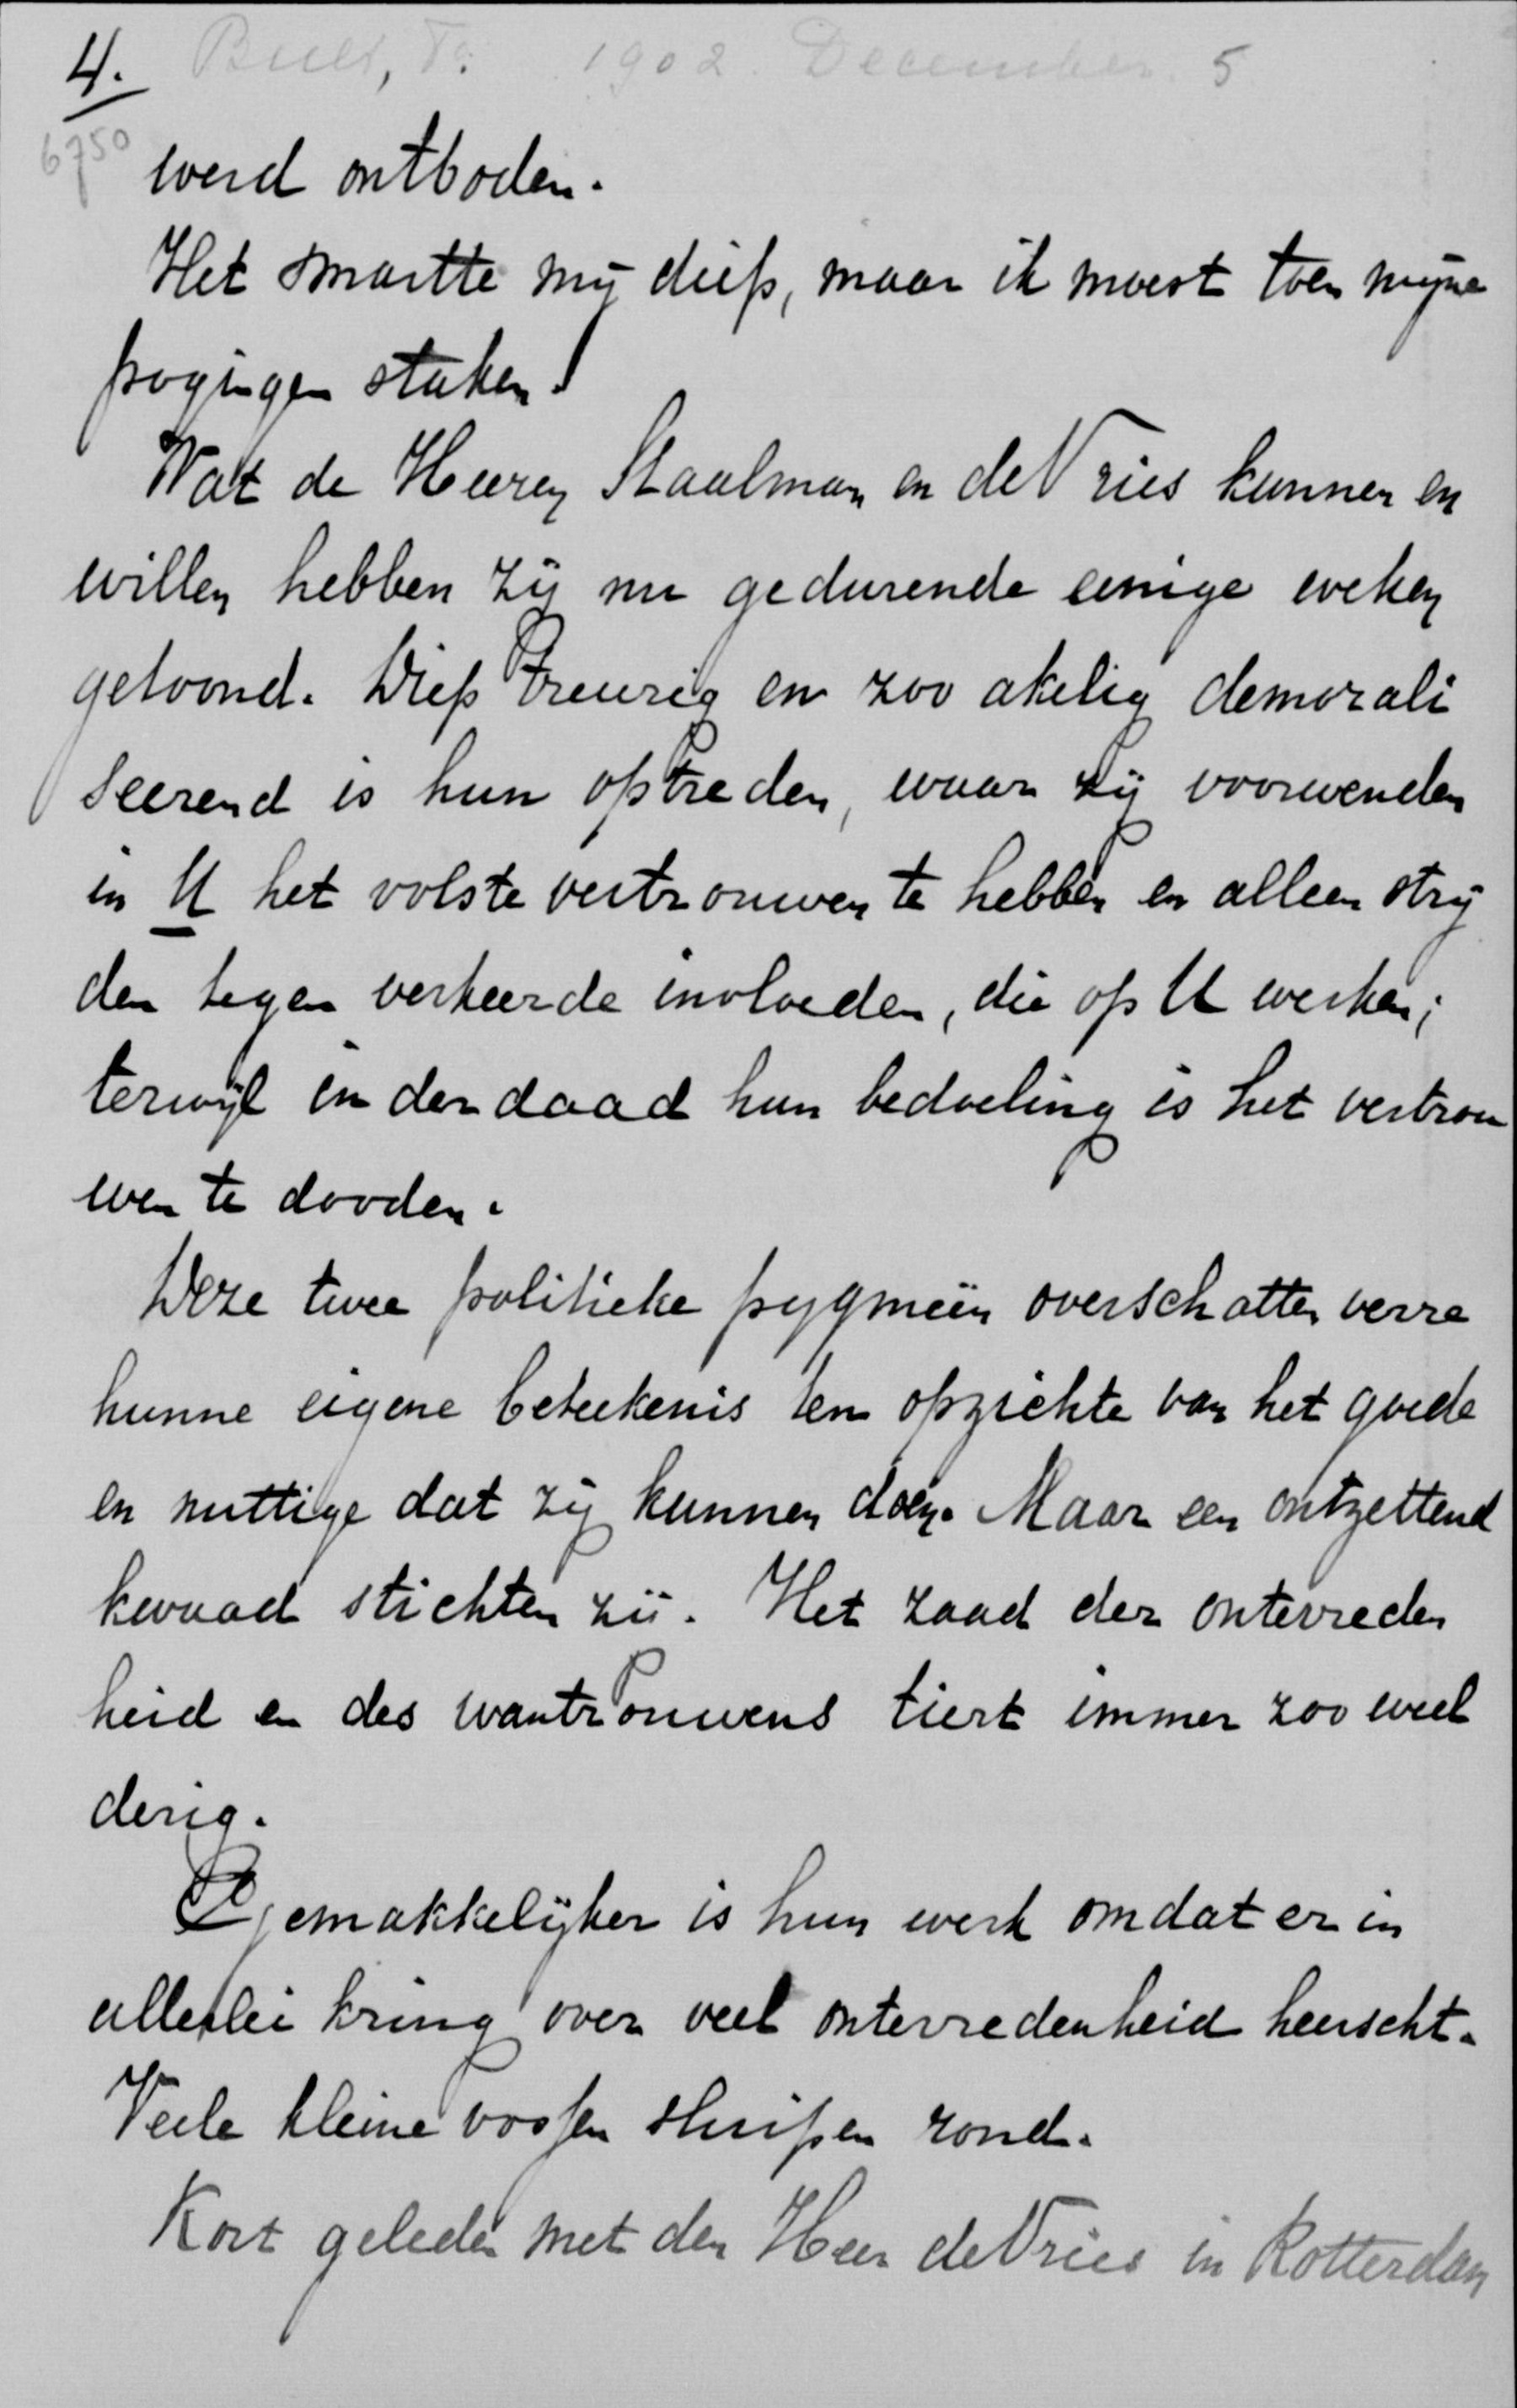 4. 1902 December 5
6750
werd ontboden.
Het smartte mij diep, maar ik moest toen mijne
pogingen staken!
Wat de Heeren Staalman en de Vries kunnen en
willen hebben zij nu gedurende eenige weken
getoond. Diep treurig en zoo akelig demorali
seerend is hun optreden, waar zij voorwenden
in U het volste vertrouwen te hebben en alleen strij
den tegen verkeerde invloeden, die op U werken;
terwijl in der daad hun bedoeling is het vertrou
wen te dooden.
Deze twee politieke pygmeën overschatten verre
hunne eigene beteekenis ten opzichte van het goede
en nuttige dat zij kunnen doen. Maar een ontzettend
kwaad stichten zij. Het zaad der ontevreden
heid en des wantrouwens tiert immer zoo weel
derig.
Gemakkelijker is hun werk omdat er in
allerlei kring over veel ontevredenheid heerscht.
Veele kleine vossen sluipen rond.
Kort geleden met den Heer de Vries in Rotterdam